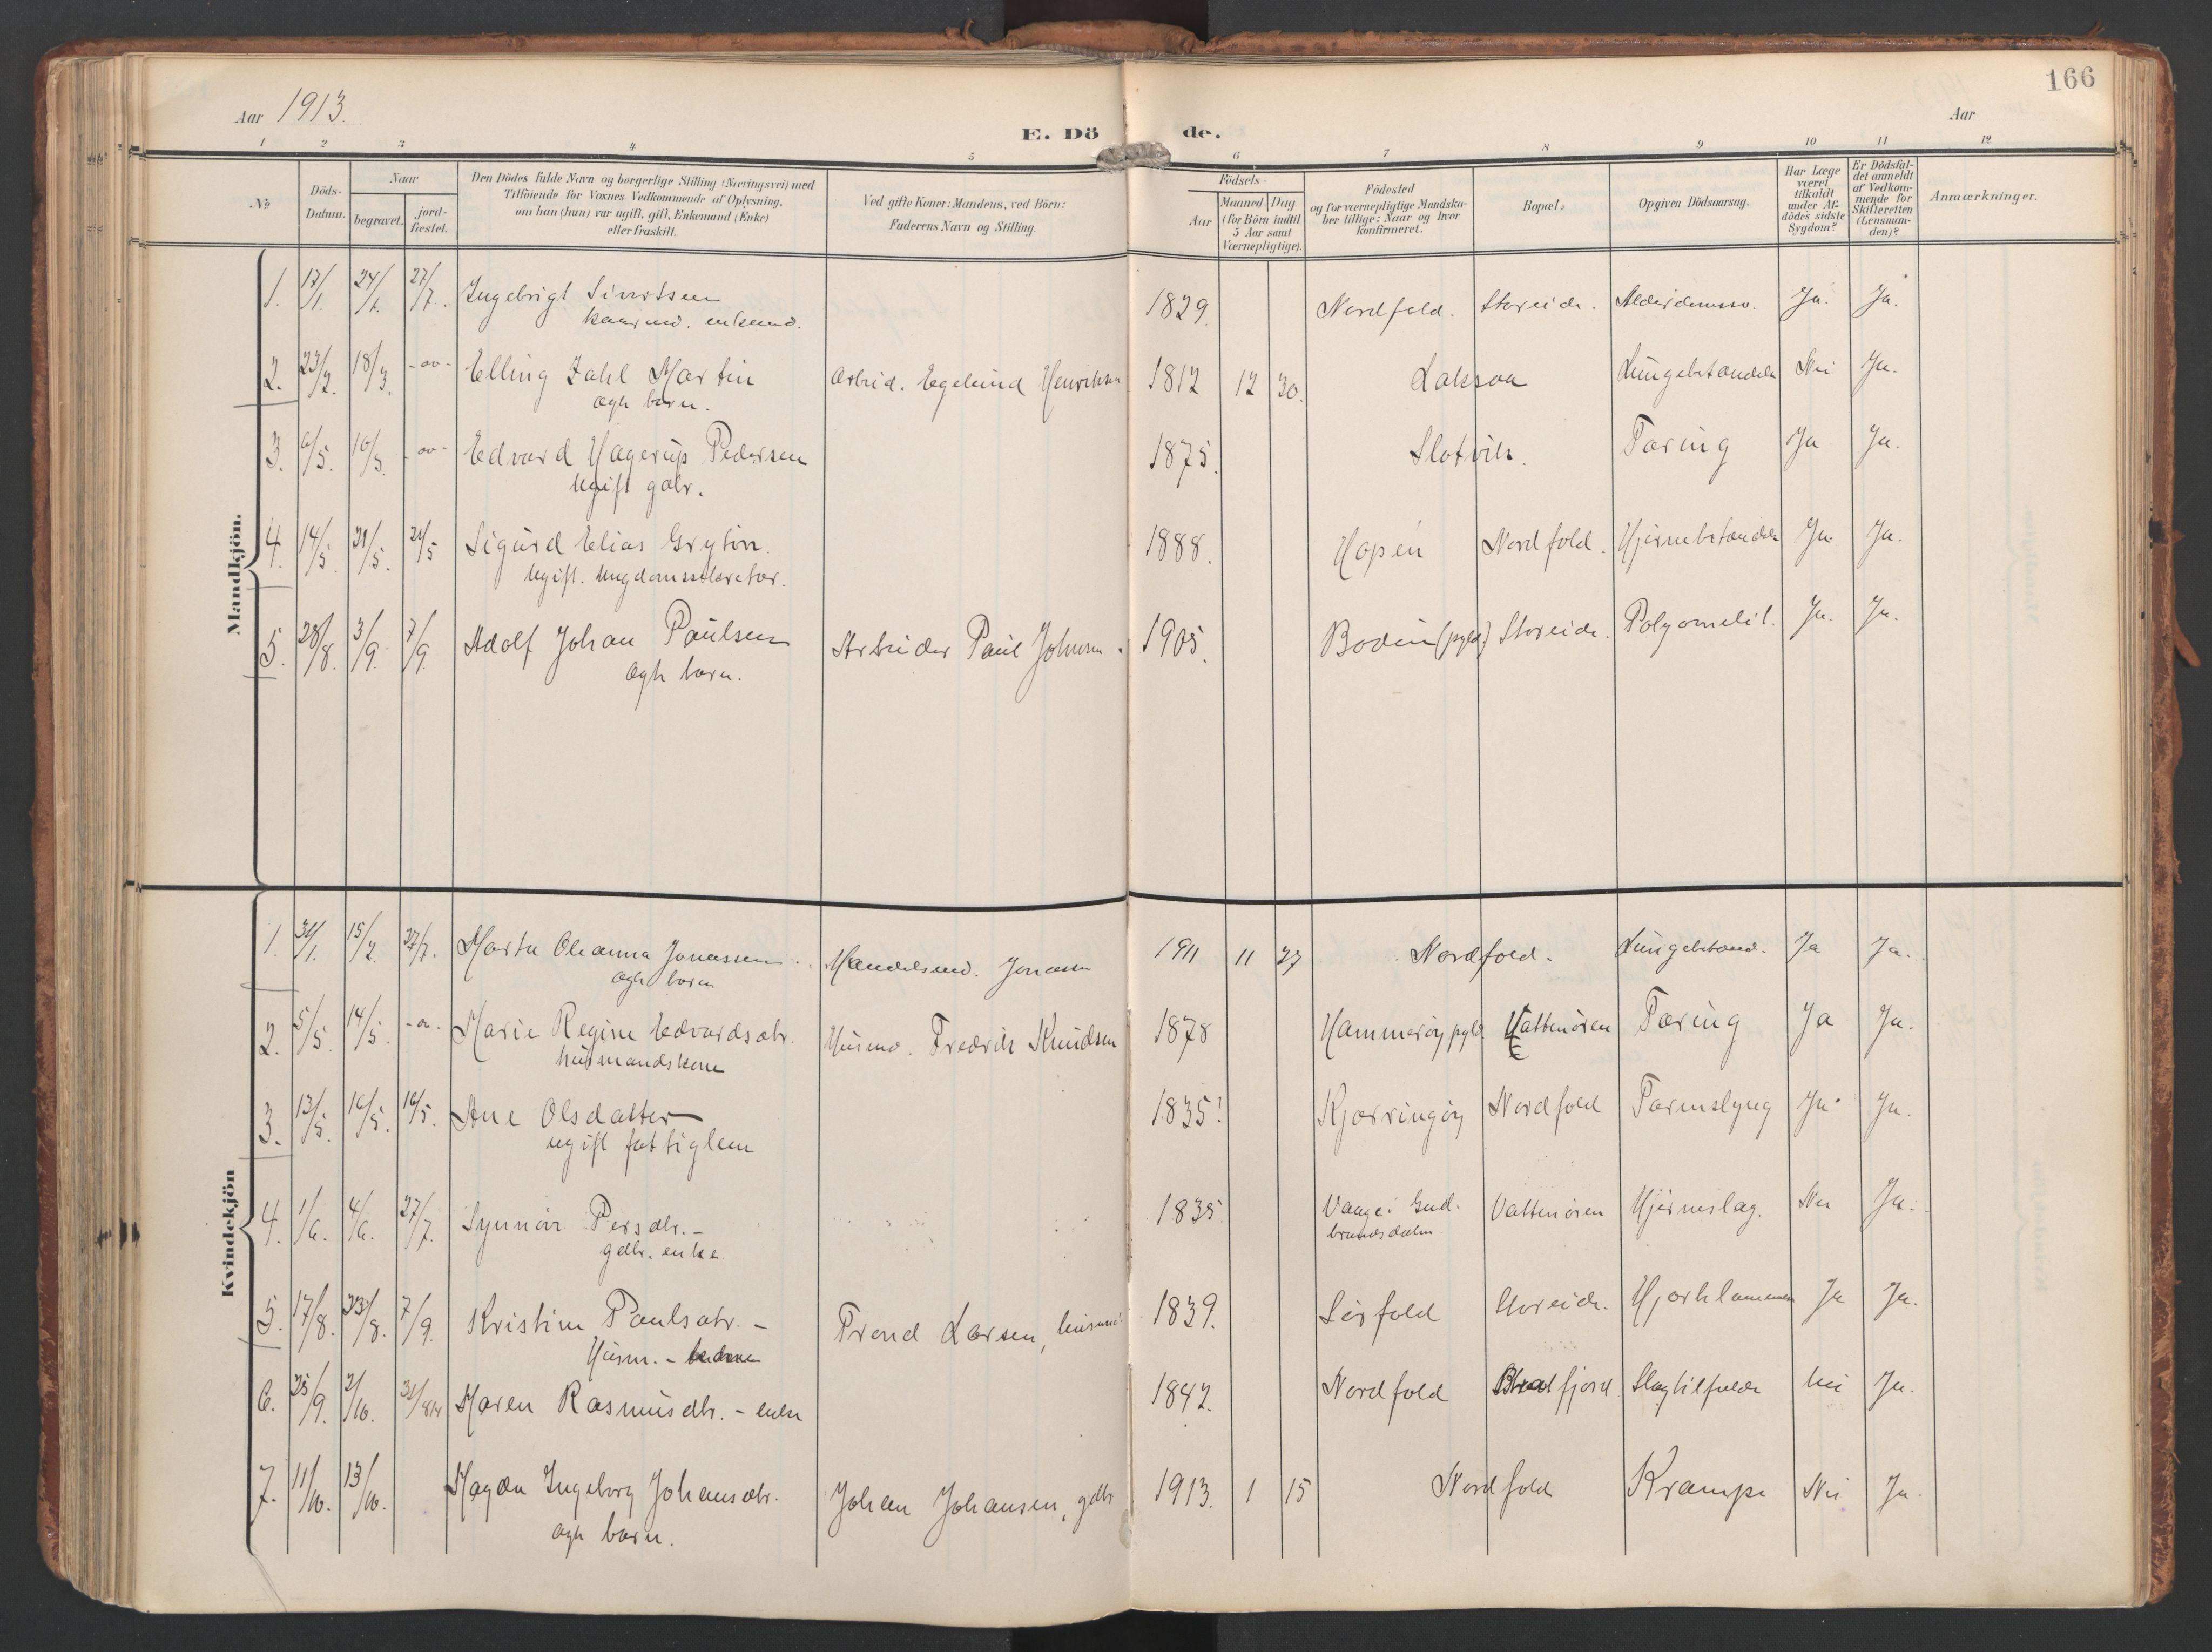 166
Aar 1913.
Aar
E. Dö de.
1 2 3 4 5 6 7 8 9 10 11 12
№
Döds-Datum.
Naar
begravet.
jord-fæstet.
Den Dödes fulde Navn og borgerlige Stilling (Næringsvei) med
Tilföiende for Voxnes Vedkommende af Oplysning,
om han (hun) var ugift, gift, Enkemand (Enke)
eller fraskilt.
Ved gifte Koner: Mandens, ved Börn:
Faderens Navn og Stilling.
Födsels-
Aar
Maaned. Dag.
(for Börn indtil
5 Aar samt
Værnepligtige).
Födested
og for værnepligtige Mandska-
ber tillige: Naar og hvor
konfirmeret.
Bopæl.
Opgiven Dödsaarsag.
Har Læge
været
tilkaldt
under Af-
dödes sidste
Sygdom?
Er Dödsfal-
det anmeldt
af Vedkom-
mende for
Skifteretten
(Lensman-
den)?
Anmærkninger.
Mandkjön.
1. 17/1. 24/1. 27/7. Ingebrigt Sivertsen 1829. Nordfold. Storeide. Ja. Ja.
kaarmd. enkemd.
2. 23/2. 18/3. -"- Elling Zahl Martin Arbeid. Egelund Henriksen 1812 12 30. Laksaa Lungebetændelse Nei Ja.
ægte barn.
3. 6/5. 16/5. -"- Edvard Hagerup Pedersen 1875. Slotvik. Tæring Ja Ja.
Ugift gdbr.
4. 14/5. 21/5. 21/5 Sigurd Elias Grytøir. 1888. Hopen Nordfold. Hjernebetændelse Ja Ja.
Ugift. Ungdomssekretær.
5. 28/8. 3/9. 7/9. Adolf Johan Paulsen Arbeider Paul Johnsen. 1905. Bodin (pgld) Storeide. Polyomelit. Ja. Ja.
ægte barn.
Kvindekjön
1. 31/1. 15/2. 27/7. Marta Oleanna Jonassen. Handelsmd. Jonassen 1911 11 27 Nordfold. Lungebetænd. Ja Ja.
ægte barn
2. 5/5. 14/5. -"- Marie Regine Edvardsdtr. Husmd. Fredrik Knudsen 1878 Hammerøy pgld Vattenøren Tæring Ja Ja.
husmandskone
3. 13/5. 16/5. 16/5. Ane Olsdatter 1835? Kjærringøy Nordfold Tarmslyng Ja Ja.
ugift fattiglem
4. 1/6. 4/6. 27/7. Synnøv Persdtr. - 1835. Vaage i Gud- Vattenøren Hjerneslag. Nei Ja.
gdbr. enke. brandsdalen
5. 17/8. 23/8. 7/9. Kristine Paulsdtr. - Trond Larsen, husmd. 1839. Sørfold Storeide. Hjertelammelse Ja Ja.
Husm. -
6. 25/9. 2/10. Maren Rasmusdtr. - enke 1842. Nordfold Slagtilfælde Nei Ja.
7. 11/10. 13/10. Magda Ingeborg Johansdtr. Johan Johansen, gdbr 1913. 1 15 Nordfold Krampe Nei Ja.
ægte barn.